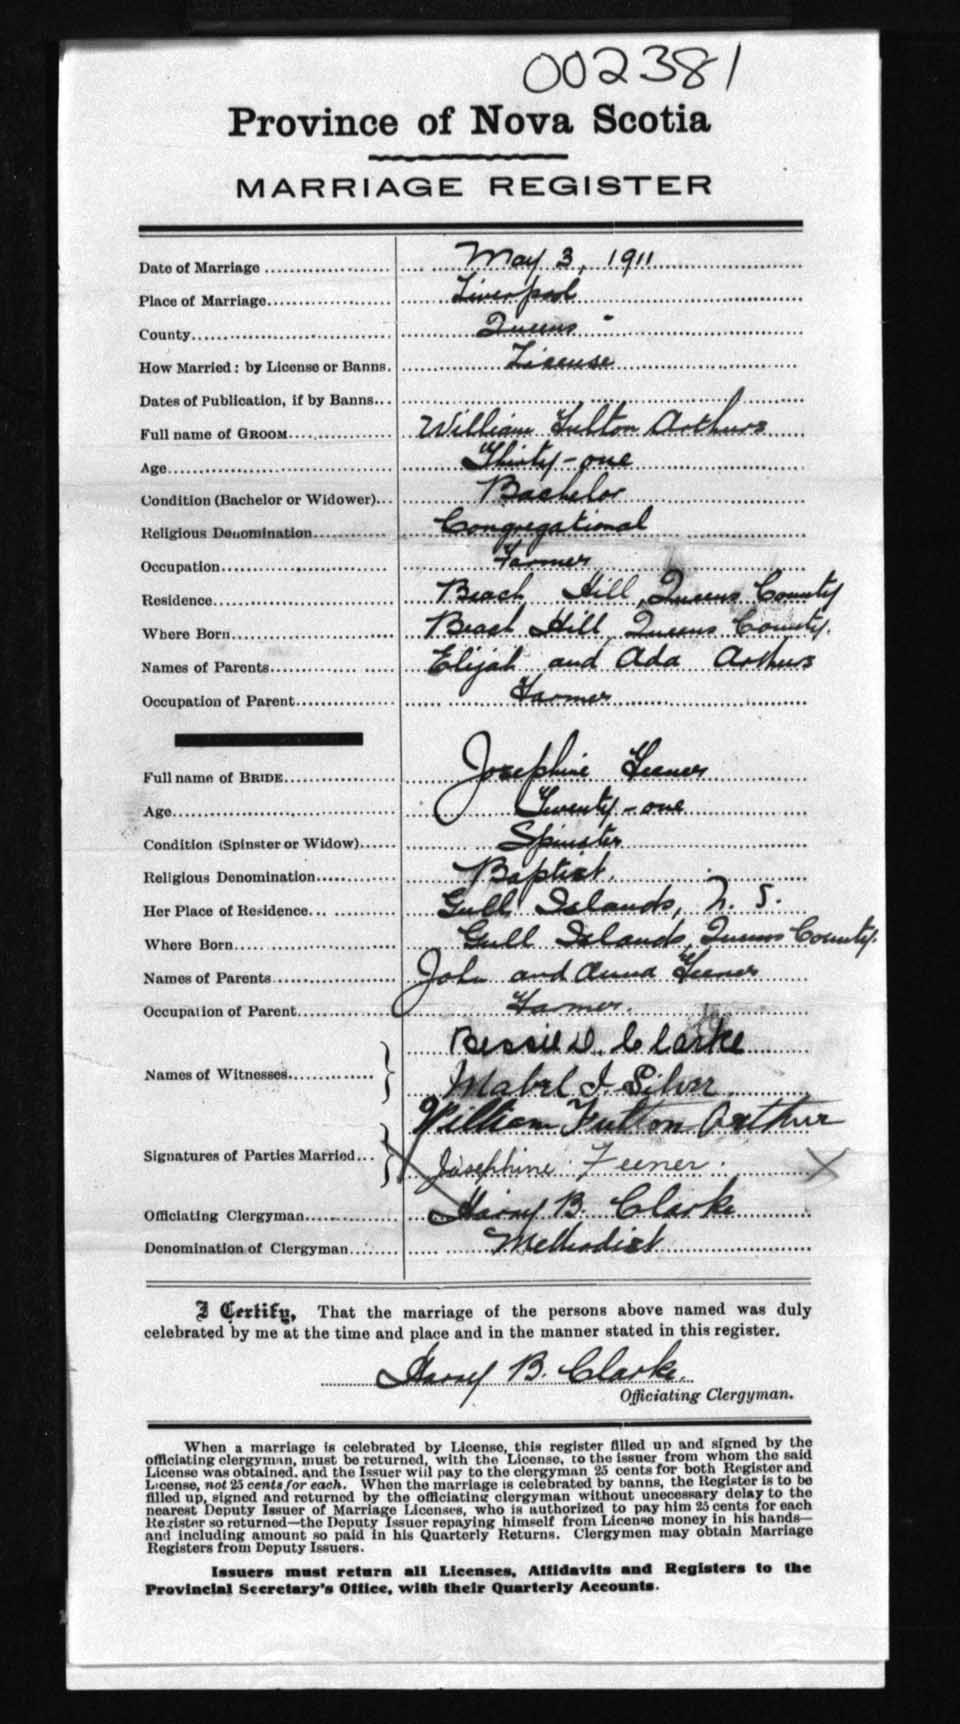 002381
Province of Nova Scotia
MARRIAGE REGISTER
Date of Marriage May 3, 1911
Place of Marriage Liverpool
County Queens
How Married: by License or Banns. License
Dates of Publication, if by Banns
Full name of GROOM William Fulton Arthurs
Age Thirty-one
Condition (Bachelor or Widower) Bachelor
Religious Denomination Congregational
Occupation Farmer
Residence Beach Hill, Queens County
Where Born Beach Hill, Queens County.
Names of Parents Elijah and Ada Arthurs
Occupation of Parent Farmer
Full name of BRIDE Josephine Feener
Age Twenty-one
Condition (Spinster or Widow) Spinster
Religious Denomination Baptist.
Her Place of Residence Gull Islands, N. S.
Where Born Gull Islands, Queens County.
Names of Parents John and Anna Feener
Occupation of Parent Farmer.
Names of Witnesses Bessie D. Clarke
Mabel I. Silver
Signatures of Parties Married William Fulton Arthur
Josephine Feener.
Officiating Clergyman Harry B. Clarke
Denomination of Clergyman Methodist
I Certify, That the marriage of the persons above named was duly
celebrated by me at the time and place and in the manner stated in this register.
Harry B. Clarke.
Officiating Clergyman.
When a marriage is celebrated by License, this register filled up and signed by the
officiating clergyman, must be returned, with the License, to the issuer from whom the said
License was obtained, and the Issuer will pay to the clergyman 25 cents for both Register and
License, not 25 cents for each. When the marriage is celebrated by banns, the Register is to be
filled up, signed and returned by the officiating clergyman without unecessary delay to the
nearest Deputy Issuer of Marriage Licenses, who is authorized to pay him 25 cents for each
Register so returned—the Deputy Issuer repaying himself from License money in his hands—
and including amount so paid in his Quarterly Returns. Clergymen may obtain Marriage
Registers from Deputy Issuers.
Issuers must return all Licenses, Affidavits and Registers to the
Provincial Secretary's Office, with their Quarterly Accounts.